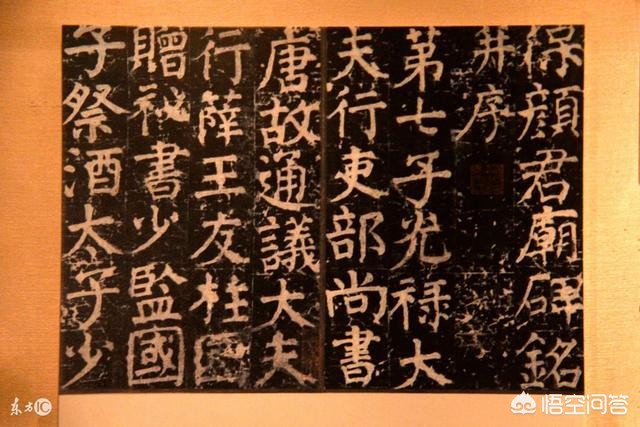 保顔君廟碑銘
并序
第七子光禄大
夫行吏部尚書
唐故通議大夫
行薛王友柱國
贈祕書少監國
子祭酒太子少
东方IC
悟空问答